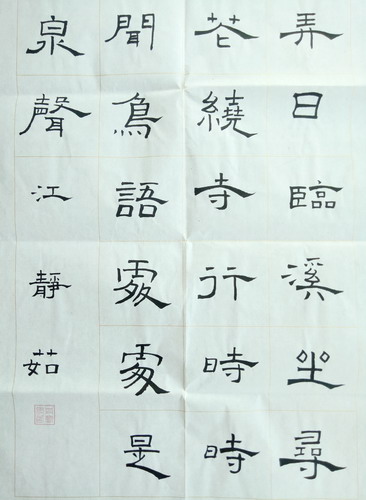 弄日臨溪坐尋
花繞寺行時時
聞鳥語處處是
泉聲江靜茹